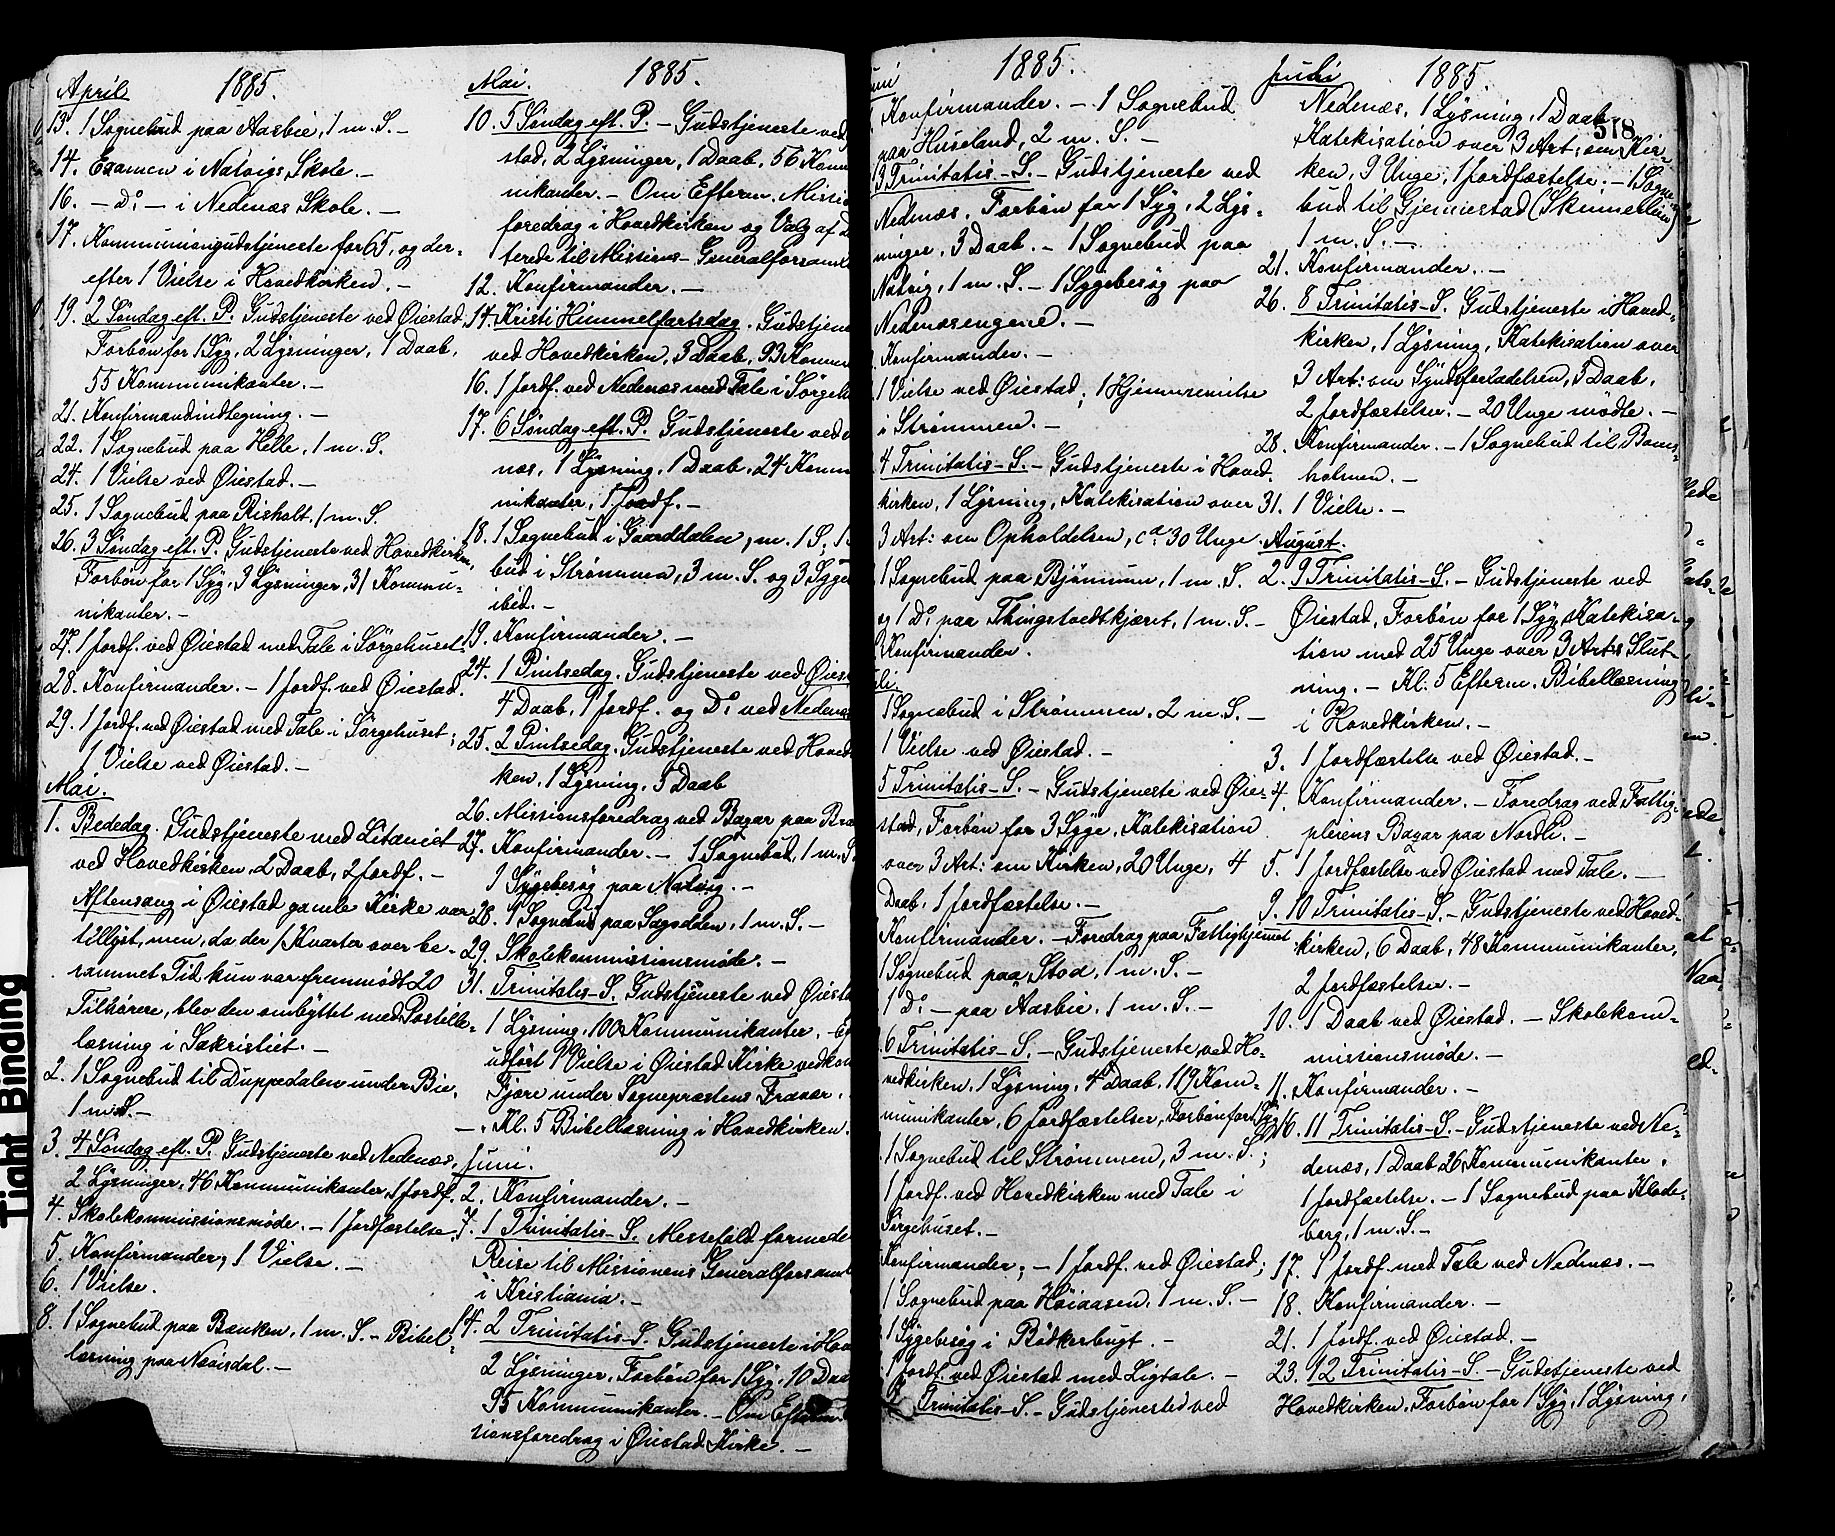 April 1885.
13. 1 Sognebud paa Aasbie, 1 m. S. –
14. Examen i Natvigs Skole. –
16. – Do – i Nedenæs Skole. –
17. Kommuniongudstjeneste for 65, og der-
efter 1 Vielse i Hovedkirken. –
19. 2 Søndag eft. P. Gudstjeneste ved Øiestad,
Forbøn for 1 Syg, 2 Lysninger, 1 Daab,
55 Kommunikanter. –
21. Konfirmandindtegning. –
22. 1 Sognebud paa Helle, 1 m. S.
24. 1 Vielse ved Øiestad. –
25. 1 Sognebud paa Risholt, 1 m. S.
26. 3 Søndag eft. P. Gudstjeneste ved Hovedkirken,
Forbøn for 1 Syg, 3 Lysninger, 31 Kommu-
nikanter. –
27. 1 Jordf. ved Øiestad med Tale i Sørgehuset.
28. Konfirmander. – 1 Jordf. ved Øiestad.
29. 1 Jordf. ved Øiestad med Tale i Sørgehuset;
1 Vielse ved Øiestad. –
Mai.
1. Bededag. Gudstjeneste med Litaniet
ved Hovedkirken, 2 Daab, 2 Jordf. –
Aftensang i Øiestad gamle Kirke var
tillyst, men, da der 1 Kvarter over be-
rammet Tid kun var fremmødt 20
Tilhørere, blev den ombyttet med Postille-
læsning i Sakristiet. –
2. 1 Sognebud til Duppedalen under Bie,
1 m. S. –
3. 4 Søndag eft. P. Gudstjeneste ved Nedenæs,
2 Lysninger, 46 Kommunikanter, 1 Jordf.
4. Skolekommissionsmøde. – 1 Jordfæstelse.
5. Konfirmander, 1 Vielse. –
6. 1 Vielse.
8. 1 Sognebud paa Bænken, 1 m. S. – Bibel-
læsning paa Næsisdal. –
Mai. 1885.
10. 5 Søndag eft. P. – Gudstjeneste ved
stad, 2 Lysninger, 1 Daab, 56 Kommu
nikanter. – Om Efterm. Missio
foredrag i Hovedkirken og Valg af
terede til Missions-Generalforsamli
12. Konfirmander. –
14. Kristi Himmelfartsdag. Gudstjene
ved Hovedkirken, 3 Daab, 93 Kommu
16. 1 Jordf. ved Nedenæs med Tale i Sørgehu
17. 6 Søndag eft. P. Gudstjeneste ved
næs, 1 Lysning, 1 Daab, 24 Kommu
nikanter, 1 Jordf. –
18. 1 Sognebud i Gaarddalen, m. 1 S; 1
bud i Strømmen, 3 m. S. og 3 Syge
ibid. –
19. Konfirmander. –
24. 1 Pintsedag. Gudstjeneste ved Øies
4 Daab, 1 Jordf. og Do ved Nedenæs
25. 2 Pintsedag. Gudstjeneste ved Hoved
ken, 1 Lysning, 5 Daab
26. Missionsforedrag ved Bazar paa Bra
27. Konfirmander. – 1 Sognebud, 1 m. S.
1 Sygebesøg paa Natvig. –
28. 1 Sognebud paa Sagodden, 1 m. S. –
29. Skolekommissionsmøde. –
31. Trinitatis-S. Gudstjeneste ved Øiesta
1 Lysning, 100 Kommunikanter. –
udført 1 Vielse i Øiestad Kirke ved
Fjære under Sognepræstens Fravær.
– Kl. 5 Bibellæsning i Hovedkirken.
Juni.
2. Konfirmander. –
7. 1 Trinitatis-S. Messefald formede
Reise til Missionens Generalforsaml
i Kristiania. –
14. 2 Trinitatis-S. Gudstjeneste i Hov
2 Lysninger, Forbøn for 1 Syg, 10 Daa
95 Kommunikanter. – Om Efterm.
sionsforedrag i Øiestad Kirke. –
uni 1885.
Konfirmander. – 1 Sognebud
paa Huseland, 2 m. S. –
3 Trinitatis-S. – Gudstjeneste ved
Nedenæs, Forbøn for 1 Syg, 2 Lys-
ninger, 3 Daab. – 1 Sognebud paa
Natvig, 1 m. S. – 1 Sygebesøg paa
Nedenæsengene. –
Konfirmander. –
1 Vielse ved Øiestad; 1 Hjemmevielse
i Strømmen. –
4 Trinitatis-S. – Gudstjeneste i Hoved-
kirken, 1 Lysning, Katekisation over
3 Art: om Opholdelsen, ca. 30 Unge.
1 Sognebud paa Bjønnum, 1 m. S.
og 1 Do paa Thingstvedtkjæret, 1 m. S. –
Konfirmander.
li
1 Sognebud i Strømmen, 2 m. S. –
1 Vielse ved Øiestad. –
5 Trinitatis-S. – Gudstjeneste ved Øie-
stad, Forbøn for 3 Syge, Katekisation
over 3 Art: om Kirken, 20 Unge, 4
Daab, 1 Jordfæstelse. –
Konfirmander. – Foredrag paa Fattighjemmet.
1 Sognebud paa Stod, 1 m. S. –
1 Do – paa Aasbie, 1 m. S. –
6 Trinitatis-S. – Gudstjeneste ved Ho-
vedkirken, 1 Lysning, 4 Daab, 119 Kom-
munikanter, 6 Jordfæstelser, Forbøn for 1 Syg
1 Sognebud til Strømmen, 3 m. S.;
1 Jordf. ved Hovedkirken med Tale i
Sørgehuset. –
Konfirmander; – 1 Jordf. ved Øiestad;
1 Sognebud paa Høiaasen, 1 m. S. –
1 Sygebesøg i Bødkerbugt. –
1 Jordf. ved Øiestad med Ligtale. –
Trinitatis-S. – Gudstjenested ved
Juli 1885.
578
Nedenæs, 1 Lysning, 1 Daab,
Katekisation over 3 Art: om Kir-
ken, 9 Unge, 1 Jordfæstelse; – 1 Sogne-
bud til Gjennestad (Skumellen)
1 m. S. –
21. Konfirmander. –
26. 8 Trinitatis-S. Gudstjeneste i Hoved-
kirken, 1 Lysning, Katekisation over
3 Art: om Syndsforladelsen, 5 Daab,
2 Jordfæstelser. – 20 Unge mødte. –
28. Konfirmander. – 1 Sognebud til Boms-
holmen. –
31. 1 Vielse. –
August.
2. 9 Trinitatis-S. – Gudstjeneste ved
Øiestad, Forbøn for 1 Syg, Katekisa-
tion med 25 Unge over 3 Art:s Slut-
ning. – Kl. 5 Efterm. Bibellæsning
i Hovedkirken. –
3. 1 Jordfæstelse ved Øiestad. –
4. Konfirmander. – Foredrag ved Fattig-
pleiens Bazar paa Nordli. –
5. 1 Jordfæstelse ved Øiestad med Tale. –
9. 10 Trinitatis-S. – Gudstjeneste ved Hoved-
kirken, 6 Daab, 48 Kommunikanter,
2 Jordfæstelser. –
10. 1 Daab ved Øiestad. – Skolekom-
missionsmøde. –
11. Konfirmander. –
16. 11 Trinitatis-S. – Gudstjeneste ved Ne-
denæs, 1 Daab, 26 Kommunikanter,
1 Jordfæstelse. – 1 Sognebud paa Klode-
berg, 1 m. S. –
17. 1 Jordf. med Tale ved Nedenæs. –
18. Konfirmander. –
21. 1 Jordf. ved Øiestad. –
23. 12 Trinitatis-S. – Gudstjeneste ved
Hovedkirken, Forbøn for 1 Syg, 1 Lysning,
Tight Binding